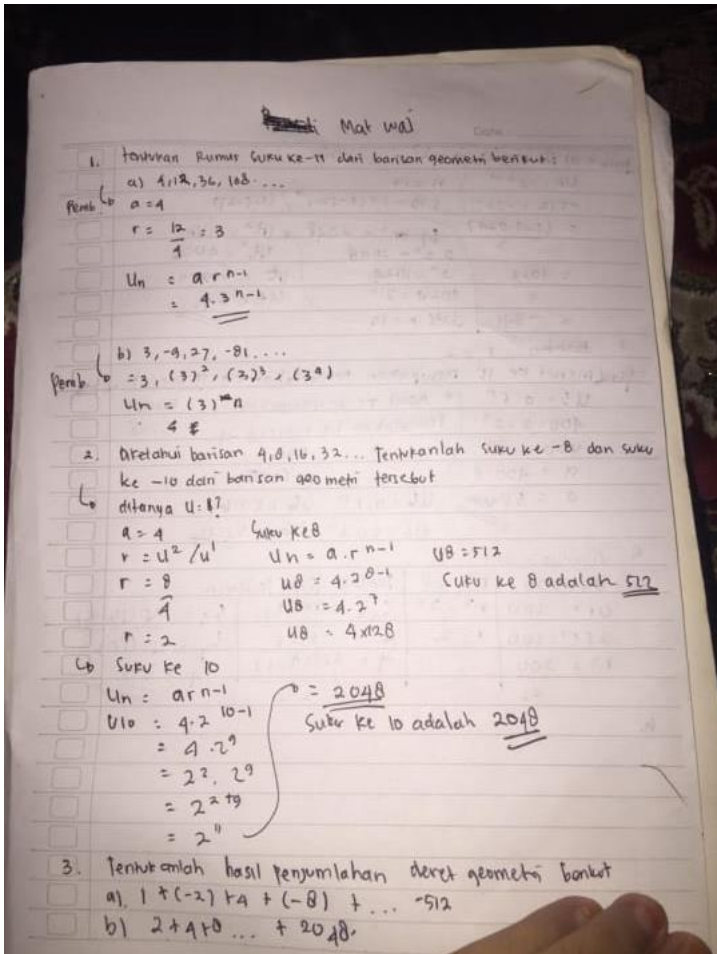 Mat wa)
1. tentukan Rumus Suku ke-n dari barisan geometri berikut :
a) 4, 12, 36, 108 ....
Pemb. a = 4
r = 12/4 = 3
Un = a.r n-1
= 4.3 n-1
b) 3, -9, 27, -81, ....
Pemb. = 3, (3)², (3)³, (3⁴)
Un = (3)ⁿ
2. diketahui barisan 4, 8, 16, 32 ... Tentukanlah suku ke -8 dan suku
ke -10 dari barisan geometri tersebut
ditanya U = 8?
a = 4 Suku ke 8
r = U² / U¹ Un = a.r n-1 U8 = 512
r = 8/4 U8 = 4.2 8-1 Suku ke 8 adalah 512
U8 = 4.2⁷
r = 2 U8 = 4x128
Suku ke 10
Un = ar n-1 = 2048
U10 = 4.2 10-1 Suku ke 10 adalah 2048
= 4.2⁹
= 2². 2⁹
= 2 2+9
= 2¹¹
3. Tentukanlah hasil penjumlahan deret geometri berikut
a). 1 + (-2) + 4 + (-8) + ... -512
b) 2+4+8 ... + 2048.